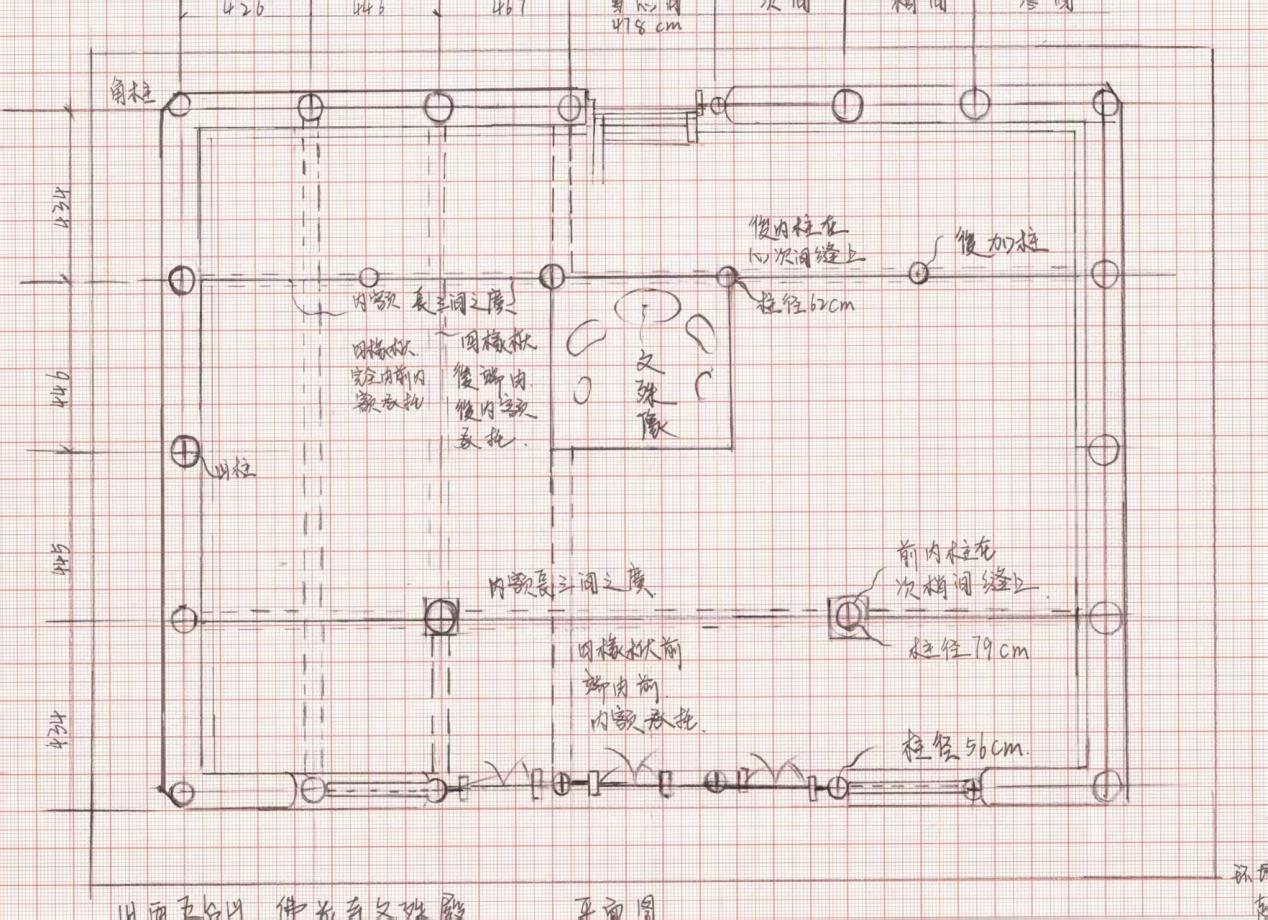 426 446 467 478 cm 次间 梢间
角柱
434
446
445
434
後内柱在
心次间缝上
後加柱
柱径62cm
内额長三间之廣
四椽栿
完全由前内
额承托
四椽栿
後端由
後内额
承托.
文
殊
像
山柱
内额長三间之廣
前内柱在
次梢间缝上.
柱径79cm
四椽栿前
端由前.
内额承托.
柱径56cm.
山西五台山 佛光寺文殊殿 平面图